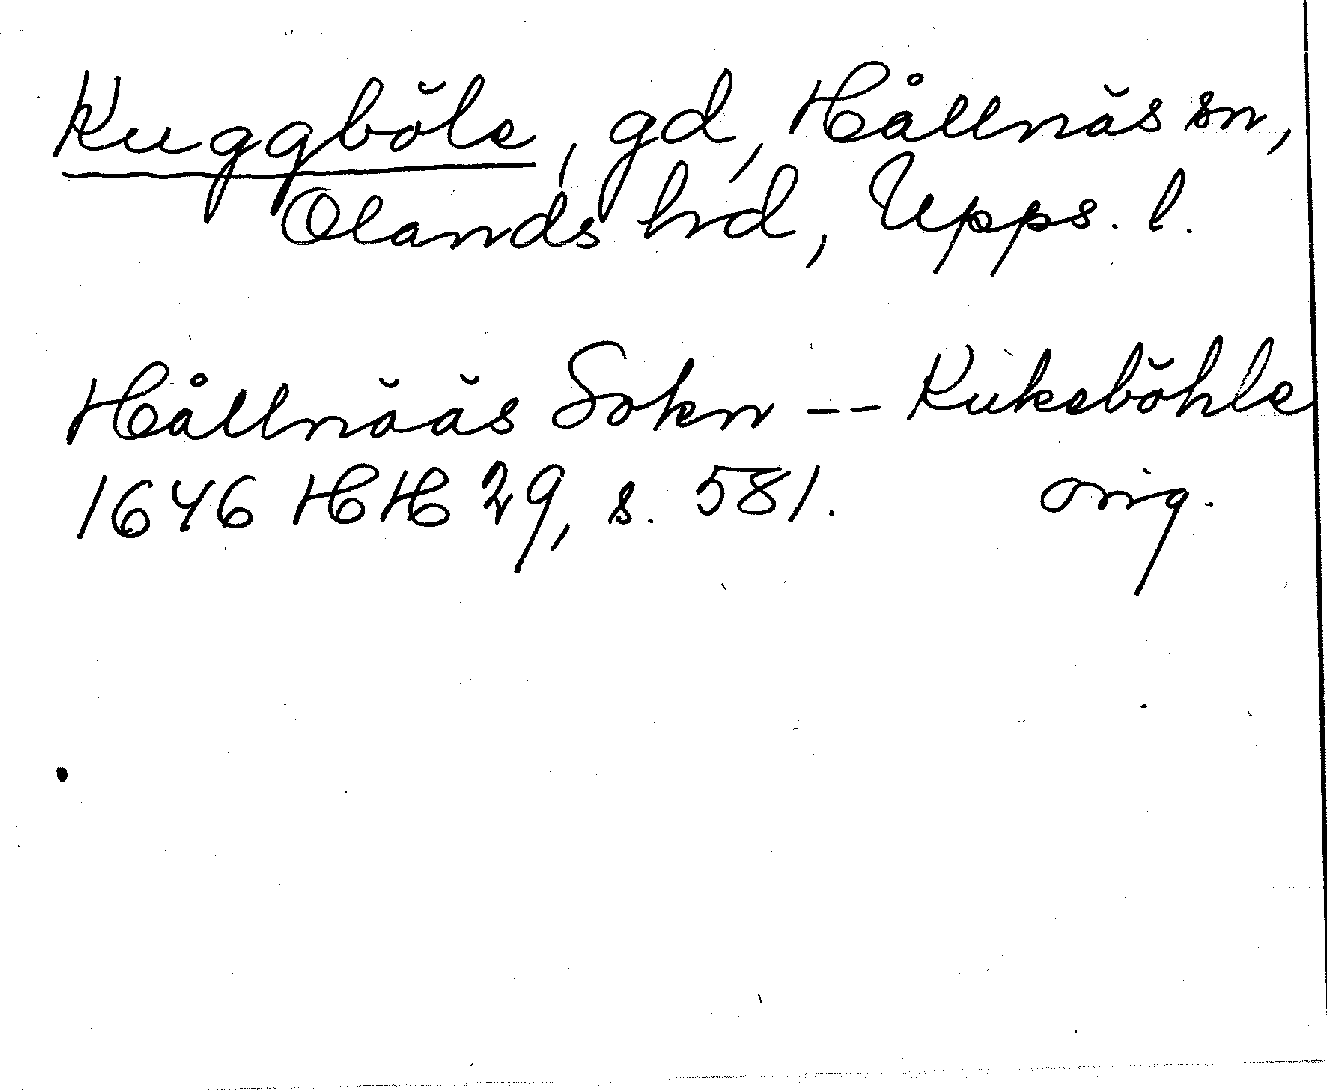 Kuggböle, gd, Hållnäs sn,
Olands hd, Upps. l.
Hållnääs Sokn -- Kukeböhle
1646 HH 29, s. 581. orig.